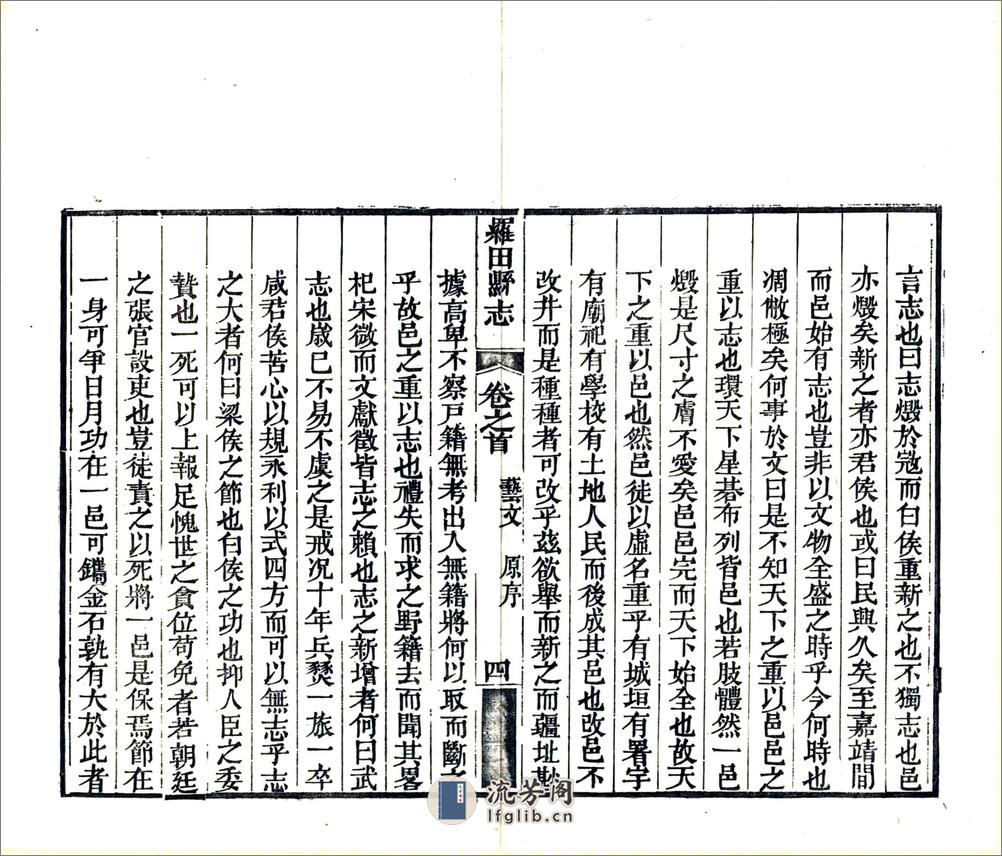 言志也曰志燬於寇而白侯重新之也不獨志也邑
亦燬矣新之者亦君侯也或曰民興久矣至嘉靖間
而邑始有志也豈非以文物全盛之時乎今何時也
凋敝極矣何事於文曰是不知天下之重以邑邑之
重以志也環天下星碁布列皆邑也若肢體然一邑
燬是尺寸之膚不愛矣邑邑完而天下始全也故天
下之重以邑也然邑徒以虛名重乎有城垣有署宇
有廟祀有學校有土地人民而後成其邑也改邑不
改井而是種種者可改乎茲欲舉而新之而疆址
羅田縣志 卷之首 藝文 原序 四
據高卑不察戸籍無考出入無籍將何以取而斷
乎故邑之重以志也禮失而求之野籍去而聞其畧
杞宋微而文獻徵皆志之賴也志之新增者何曰武
志也歲巳不易不虞之是戒况十年兵燹一旅一卒
咸君侯苦心以規永利以式四方而可以無志乎志
之大者何曰梁侯之節也白侯之功也抑人臣之委
贄也一死可以上報足愧世之貪位苟免者若朝廷
之張官設吏也豈徒責之以死將一邑是保焉節在
一身可爭日月功在一邑可鐫金石孰有大於此者
流芳阁
lfglib.cn